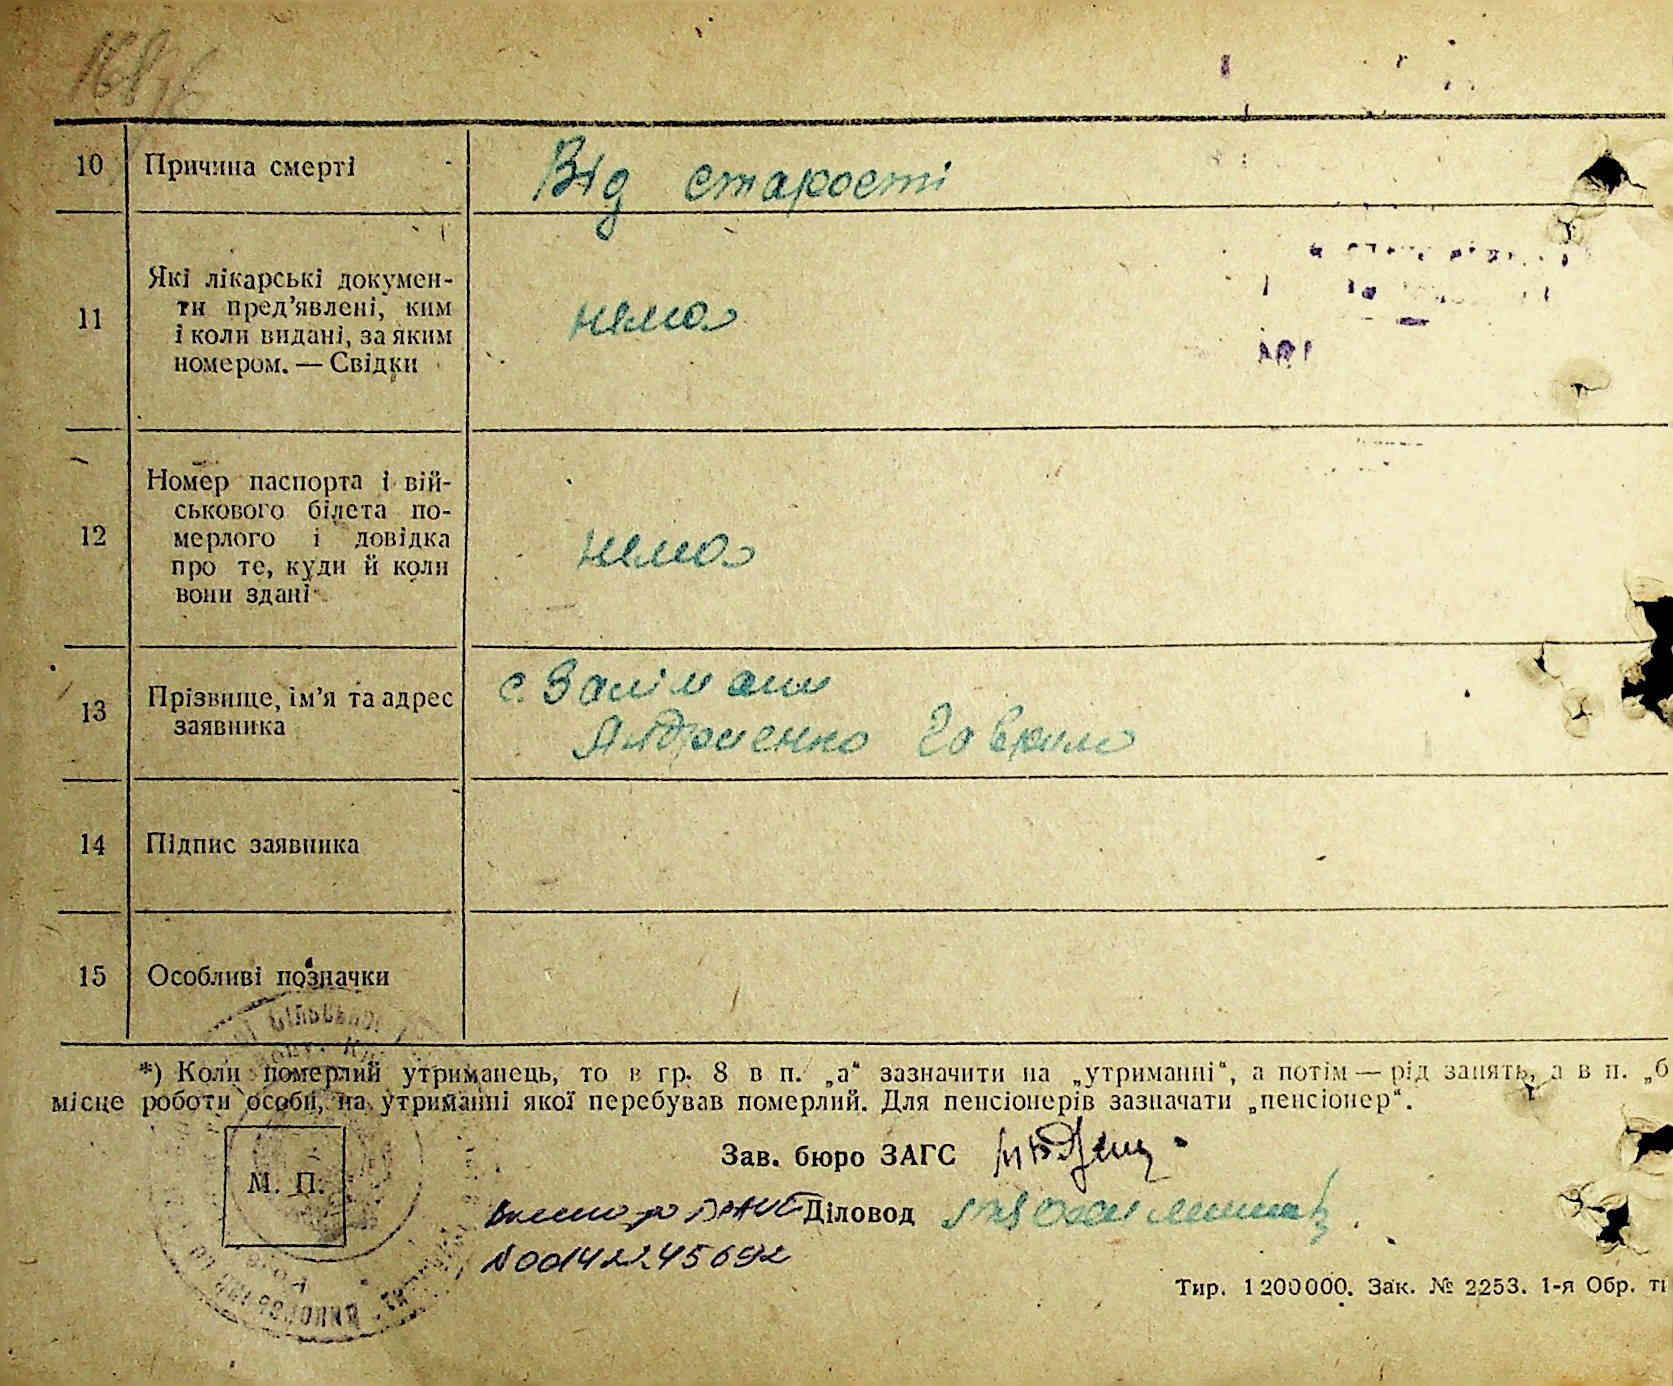 10 Причина смерті Від старости
11 Які лікарські докумен-
ти пред’явлені, ким
і коли видані, за яким
номером. — Свідки
нема
12 Номер паспорта і вій-
ськового білета по-
мерлого і довідка
про те, куди й коли
вони здані
нема
13 Прізвище, ім’я та адрес
заявника
с. Заліман
Андриенко Гаврило
14 Підпис заявника
15 Особливі позначки
*) Коли померлий утриманець, то в гр. 8 в п. „а“ зазначити на „утриманні“, а потім — рід занять, а в п. „б
місце роботи особи, на утриманні якої перебував померлий. Для пенсіонерів зазначати „пенсіонер“.
Зав. бюро ЗАГС
М. П.
Діловод
N00142245692
Тир. 1 200 000. Зак. № 2253. 1-я Обр. ти